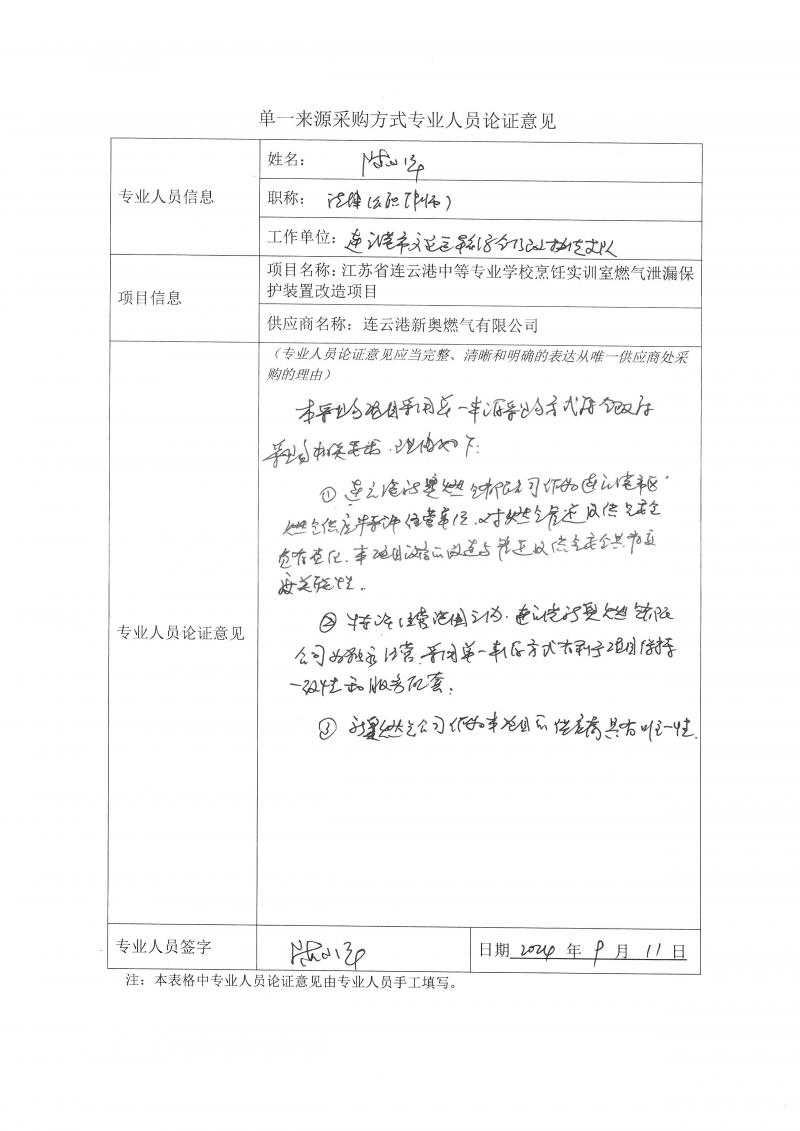 单一来源采购方式专业人员论证意见
专业人员信息
姓名：
职称： 法律（公职律师）
工作单位：连云港市交通运输综合行政执法支队
项目信息
项目名称：江苏省连云港中等专业学校烹饪实训室燃气泄漏保
护装置改造项目
供应商名称：连云港新奥燃气有限公司
专业人员论证意见
（专业人员论证意见应当完整、清晰和明确的表达从唯一供应商处采
购的理由）
本采购项目采用单一来源采购方式符合政府
采购相关要求，理由如下：
① 连云港新奥燃气有限公司作为连云港市区
燃气供应特许经营单位，对燃气管道及供气安全
负有责任，本项目设施的改造与管道及供气安全具有直
接关联性。
② 特许经营范围之内，连云港新奥燃气有限
公司为独家经营，采用单一来源方式有利于项目保持
一致性和服务配套。
③ 新奥燃气公司作为本项目的供应商具有唯一性。
专业人员签字
日期 2024 年 9 月 11 日
注：本表格中专业人员论证意见由专业人员手工填写。